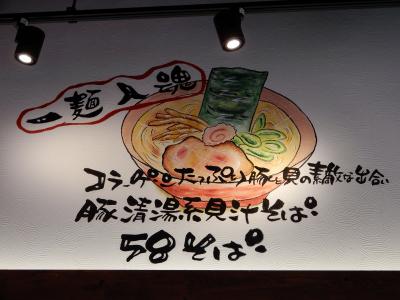 一麺入魂
コラーゲンたっぷり豚と貝の素敵な出合い
豚清湯系貝汁そば
58そば